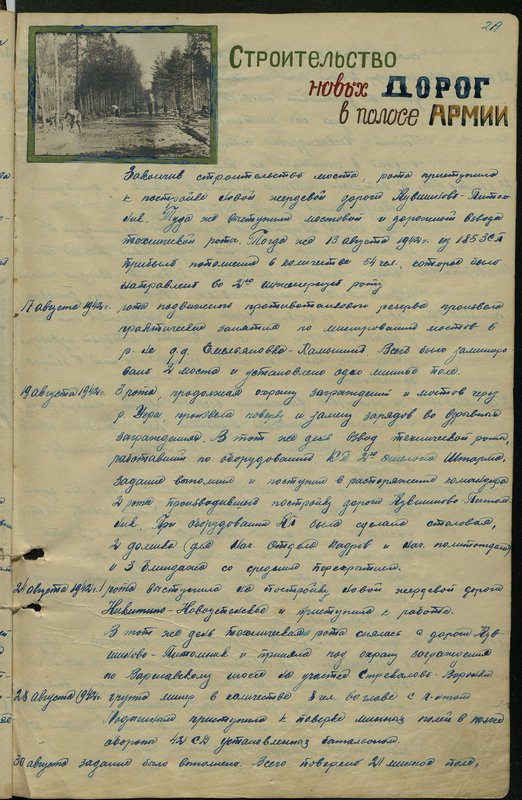 29
Строительство
новых дорог
в полосе армии
Закончив строительство моста, рота приступила
к постройке новой жердевой дороги Кувшиново-Питом
ник. Туда же выступили мостовой и дорожной взвода
технической роты. Тогда же 13 августа 1942г. из 185 ЗСП
прибыло пополнение в количестве 54 чел., которое было
направлено во 2ую инженерную роту
17 августа 1942г. рота подвижного противотанкового резерва произвела
практические занятия по минированию мостов в
р-не д.д. Емельяновка-Камышин Всего было заминиро
вано 2 моста и установлено одно минное поле.
19 августа 1942г. 3 рота, продолжая охрану заграждений и мостов через
р. Угра, произвела поверку и замену зарядов во взрывных
заграждениях. В тот же день взвод технической роты,
работавший по оборудованию КП 2го эшелона Штарма,
задание выполнил и поступил в распоряжение командира
2 роты производившего постройку дороги Кувшиново-Питом
ник. При оборудовании КП была сделана столовая,
2 домика (для нач. отдела кадров и нач. политотдела)
и 3 блиндажа со средним перекрытием.
21 августа 1942г. 1 рота выступила на постройку новой жердевой дороги
Никитино-Новоуспенское и приступила к работе.
В тот же день техническая рота снялась с дороги Кув
шиново-Питомник и приняла под охрану заграждения
по Варшавскому шоссе на участке Стрекалово-Воронки
28 августа 1942г. группа минер в количестве 8 чел. во главе с л-нтом
приступила к поверке минных полей в полосе
обороны 42 СД установленных батальоном.
30 августа задание было выполнено. Всего поверено 21 минное поле,